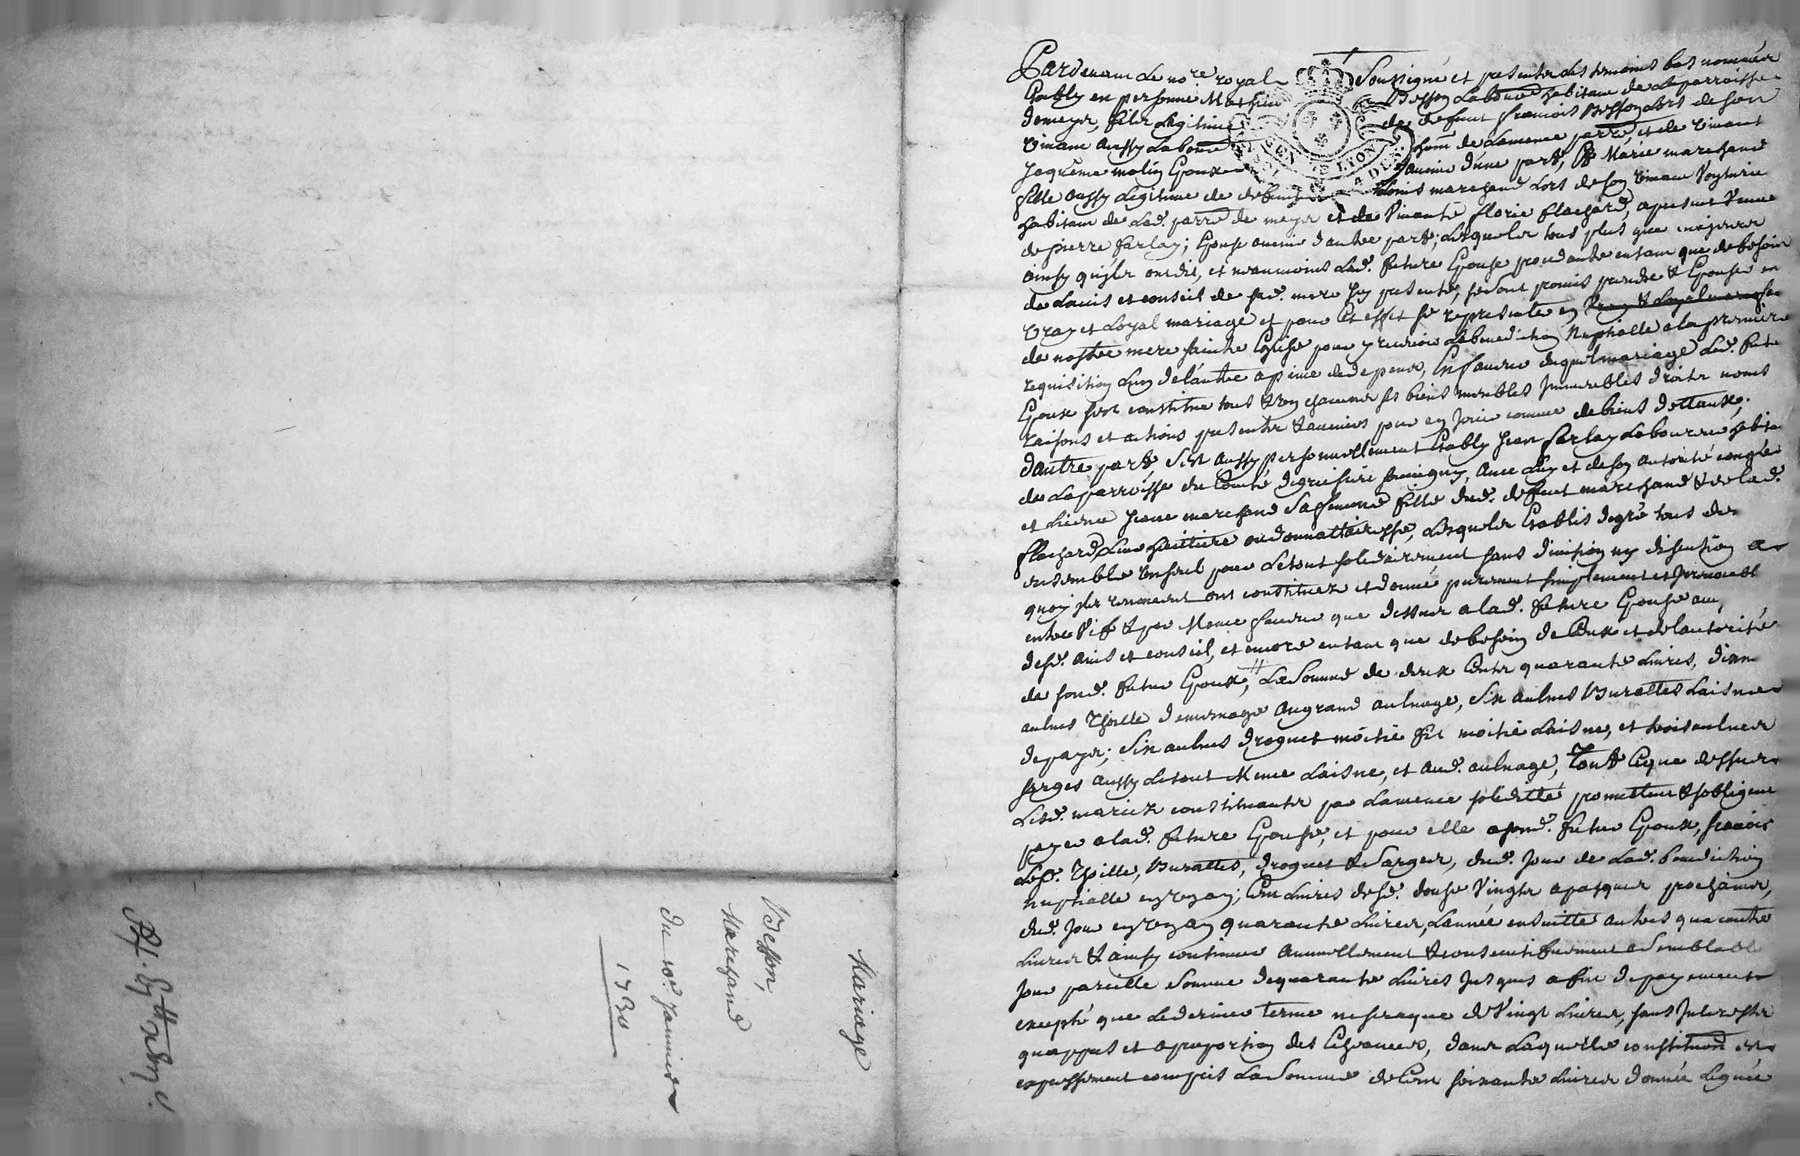 Pardevant Le no.re royal Soussigné et presents Les temoins bas nommés
Estably en personne Mathieu Besson Laboureur habitant de La parroisse
de meys, fils Legitime de deffunt francois Besson Lors de son
vivant aussy Laboureur de Lameme parre et de vivante
Jeoffrême molin Epoux avenir d'une part, Et Marie marchand
fille aussy Legitime de deffunt Louis marchand Lors de son vivant Voyturier
habitant de Lad. parre de meys et de vivante florie flachard, apresent veuve
de pierre ferlay; Epouse avenir dautre part; Lesquels tous plus que majeurs
ainsy quils ont dit, et neanmoins Lad. future Epouse procedante entant que de besoin
de Lavis et conseil de sad. mere icy presente, se sont promis prendre & Epouser en
vray et Loyal mariage et pour Cet effet se represente en
de nostre mere sainte Eglise pour y recevoir La benediction Nuptialle a la premiere
requisition Lun de Lautre a peine de depens, En faveur duquel mariage Led. futur
Epoux sest constitué tous & un chacuns ses biens meubles Immeubles droits noms
raisons et actions presents & avenirs pour en Jouir comme de biens dottaux;
Dautre part, sest aussy personnellement Estably Jean ferlay Laboureur habitant
de La parroisse du Comté de grezieu Souvigny, avec Luy et de son autorité congé
et Licence Jeanne marchand Sa femme fille dud. deffunt marchand & de lad.
flachard, Lesquels Establis de gré tous deux
ensemble Un seul pour Le tout solidairement sans division ny discution a
quoy ils renoncent ont constituez et donné purement simplement et Irrevocabl
entre vifs & par Meme faveur que dessus a lad. future Epouse au
desd. avis et conseil, et encore entant que de besoin de Ceux et de Lautorité
de sond. futur Epoux, La Somme de deux Cents quarante Livres, dix
aulnes Thoille de menage au grand aulnage, Six aulnes Burattes Laisne
de pays; Six aulnes droguet moitié fil moitié Laisne, et trois aulnes
sarges aussy Le tout Meme Laisne, et aud. aulnage, Tout Ceque dessus
Lesd. mariez constituants par Lameme solidité promettent & sobligent
payer a lad. future Epouse, et pour elle asond. futur Epoux, scavoir
Lesd. Thoille, Burattes, droguet & Sarges, dud. Jour de Lad. benediction
nuptialle en un an; Cent Livres desd. douse Vingts a pasques prochaines,
dud. Jour en un an quarante Livres, Lannée ensuitte autres quarante
Livres & ainsy continuer annuellement & consecutivement a Semblable
Jour pareille Somme de quarante Livres Jusques a fin de payement
excepté que Le dernier terme ne sera que de Vingt Livres, sans Interests
qu'appres et a proportion des Echeances, dans Laquelle constitution est
expressement compris La Somme de Cent soixante Livres donnée Leguée
Mariage
Besson,
Marchand
Du 10e. Janvier
1730